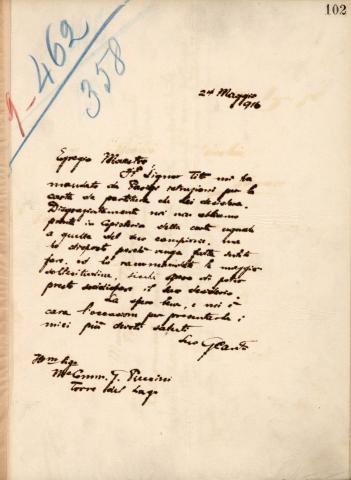 102
9-462
358
2nd Maggio
916
Egregio Maestro
Il Signor Tito mi ha
mandato da Parigi istruzioni per la
carta da partitura che Lei desidera.
Disgraziatamente noi non abbiamo
pronta in Copisteria della carta eguale
a quella del suo campione, ma
ho disposto perchè venga fatta subito
fare, ed ho raccomandato la maggior
sollecitudine, sicchè spero di poter
presto soddisfare il suo desiderio.
La spero bene, e mi è
cara l'occasione per presentarle i
miei più devoti saluti
Suo
Ill.mo Sig.
Mo Comm. G. Puccini
Torre del Lago